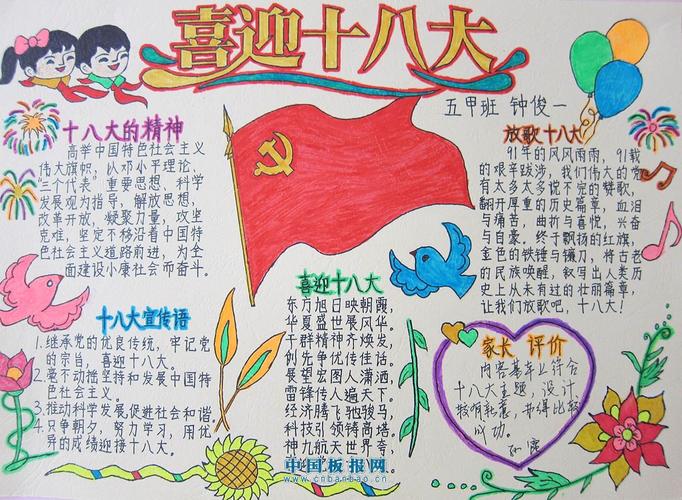 喜迎十八大
五甲班 钟俊一
十八大的精神
高举中国特色社会主义
伟大旗帜,以邓小平理论,
三个代表"重要思想、科学
发展观为指导,解放思想,
改革开放,凝聚力量,攻坚
克难,坚定不移沿着中国特
色社会主义道路前进,为全
面建设小康社会而奋斗。
放歌十八大
91年的风风雨雨,91载
的艰辛跋涉,我们伟大的党
有太多太多说不完的赞歌,
翻开厚重的历史篇章,血泪
与痛苦,曲折与喜悦,兴奋
与自豪。终于飘扬的红旗,
金色的铁锤与镰刀,将古老
的民族唤醒,叙写出人类历
史上从未有过的壮丽篇章,
让我们放歌吧,十八大!
十八大宣传语
1.继承党的优良传统,牢记党
的宗旨,喜迎十八大。
2.毫不动摇坚持和发展中国特
色社会主义。
3.推动科学发展,促进社会和谐
4.只争朝夕,努力学习,用优
异的成绩迎接十八大。
喜迎十八大
东方旭日映朝霞,
华夏盛世展风华。
干群精神齐焕发,
创先争优传佳话。
展望宏图人潇洒,
雷锋传人遍天下。
经济腾飞驰骏马,
科技引领铸高塔。
神九航天世界夸,
家长 评价
内容基本上符合
十八大主题,设计
较有耗素,
成功。
中国板报网
www.cnbanbao.cn